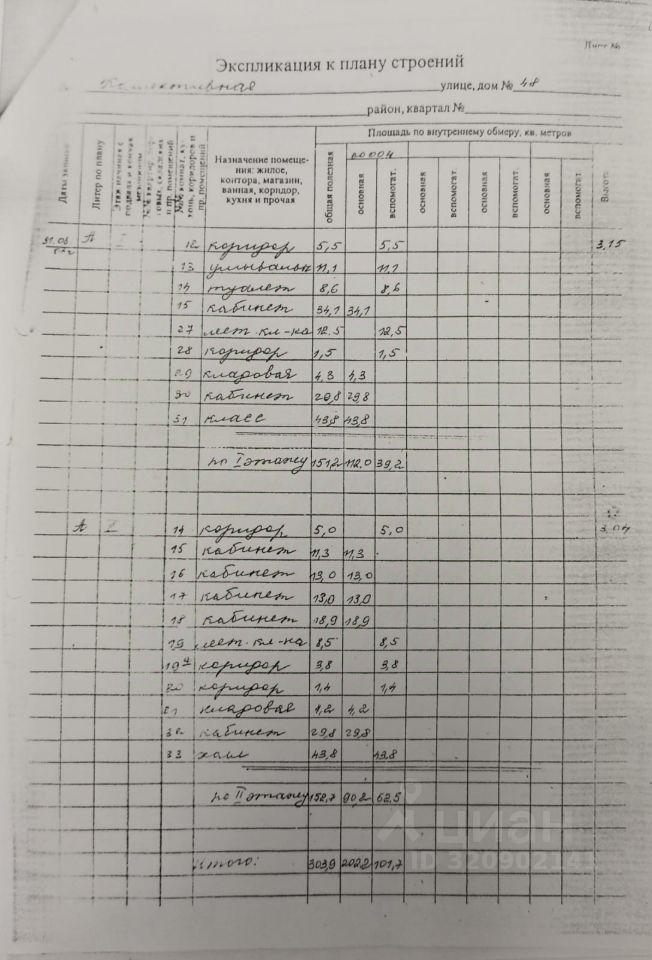 Лист №
Экспликация к плану строений
Коллективная улице, дом № 48
район, квартал №
Даты записи
Литер по плану
Назначение помеще-
ния: жилое,
контора, магазин,
ванная, коридор,
кухня и прочая
Площадь по внутреннему обмеру, кв. метров
общая полезная
основная
вспомогат.
основная
вспомогат.
основная
вспомогат.
основная
вспомогат.
Высота
А I 12 коридор 5,5 5,5 3,15
13 умывальн 11,1 11,1
14 туалет 8,6 8,6
15 кабинет 34,1 34,1
27 лест. кл-ка 12.5 12,5
28 коридор 1,5 1,5
29 кларовая 4,3 4,3
30 кабинет 29,8 29,8
31 класс 43,8 43,8
по I этажу 151,2 112.0 39,2
А II 14 коридор 5,0 5,0 3,04
15 кабинет 11,3 11,3
16 кабинет 13,0 13,0
17 кабинет 13,0 13,0
18 кабинет 18,9 18,9
19 лест. кл-ка 8,5 8,5
19а коридор 3,8 3,8
20 коридор 1,4 1,4
21 кларовая 4,2 4,2
32 кабинет 29,8 29,8
33 холл 43,8 43,8
по II этажу 152,7 90,2 62,5
Итого: 303,9 202,2 101,7
циан
ID 32090214